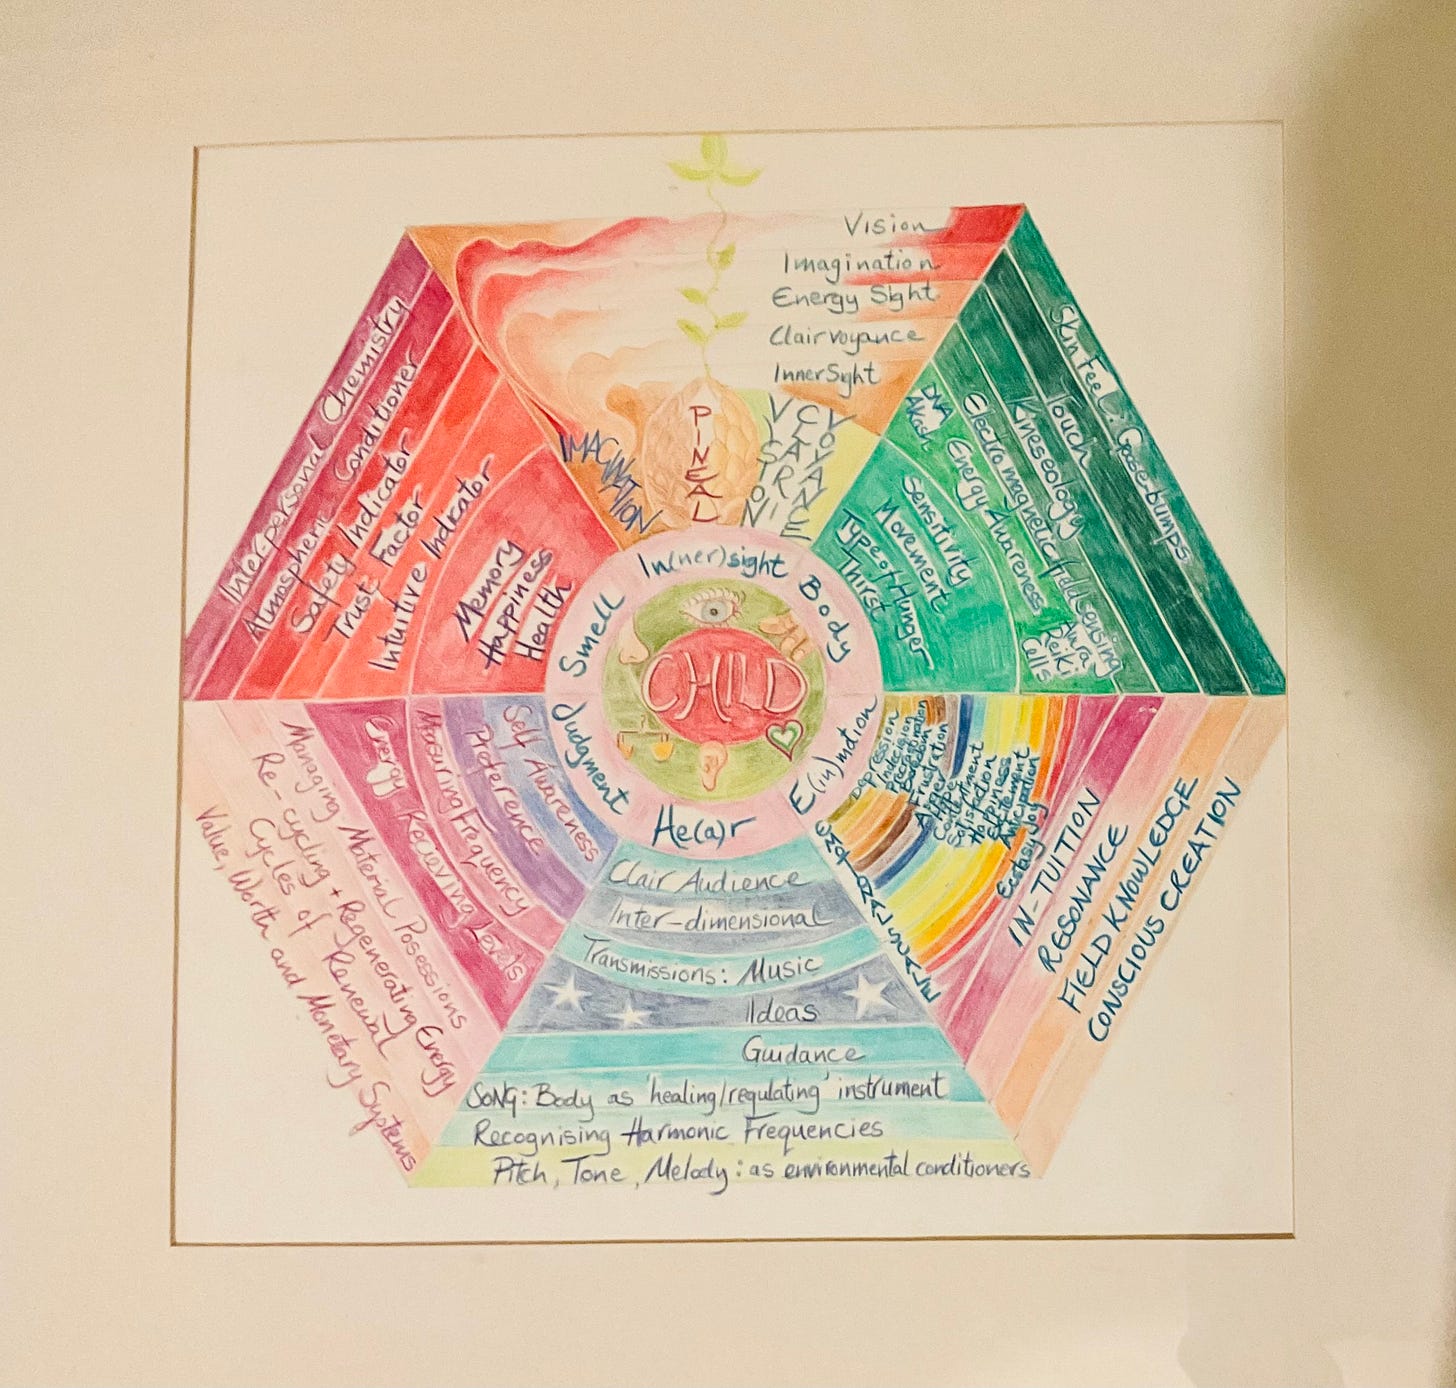 Vision
Imagination
Energy Sight
Clairvoyance
InnerSight
IMAGINATION
PINEAL
VISTION
CLAIRVOYANCE
Skin Feel: Goose-bumps
Touch
Kineseology
Electromagnetic field sensing
Energy Awareness
DNA
Akash
Aura
Reiki
Cells
Sensitivity
Movement
Type of Hunger
Thirst
In(ner)sight
Body
E(in)motion
He(a)r
Judgment
Smell
CHILD
Depression
Indecision
Procrastination
Boredom
Frustration
Anger
Hope
Contentment
Satisfaction
Happiness
Excitement
Anticipation
Joy
Ecstasy
IN-TUITION
RESONANCE
FIELD KNOWLEDGE
CONSCIOUS CREATION
Clair Audience
Inter-dimensional
Transmissions: Music
Ideas
Guidance
SONG: Body as 'healing/regulating' instrument
Recognising Harmonic Frequencies
Pitch, Tone, Melody: as environmental conditioners
Self Awareness
Preference
Measuring Frequency
Energy Recieving Levels
Managing Material Possessions
Re-cycling + Regenerating Energy
Cycles of Renewal
Value, Worth and Monetary Systems
Inter-personal Chemistry
Atmospheric Conditioner
Safety Indicator
Trust Factor
Intuitive Indicator
Memory
Happiness
Health